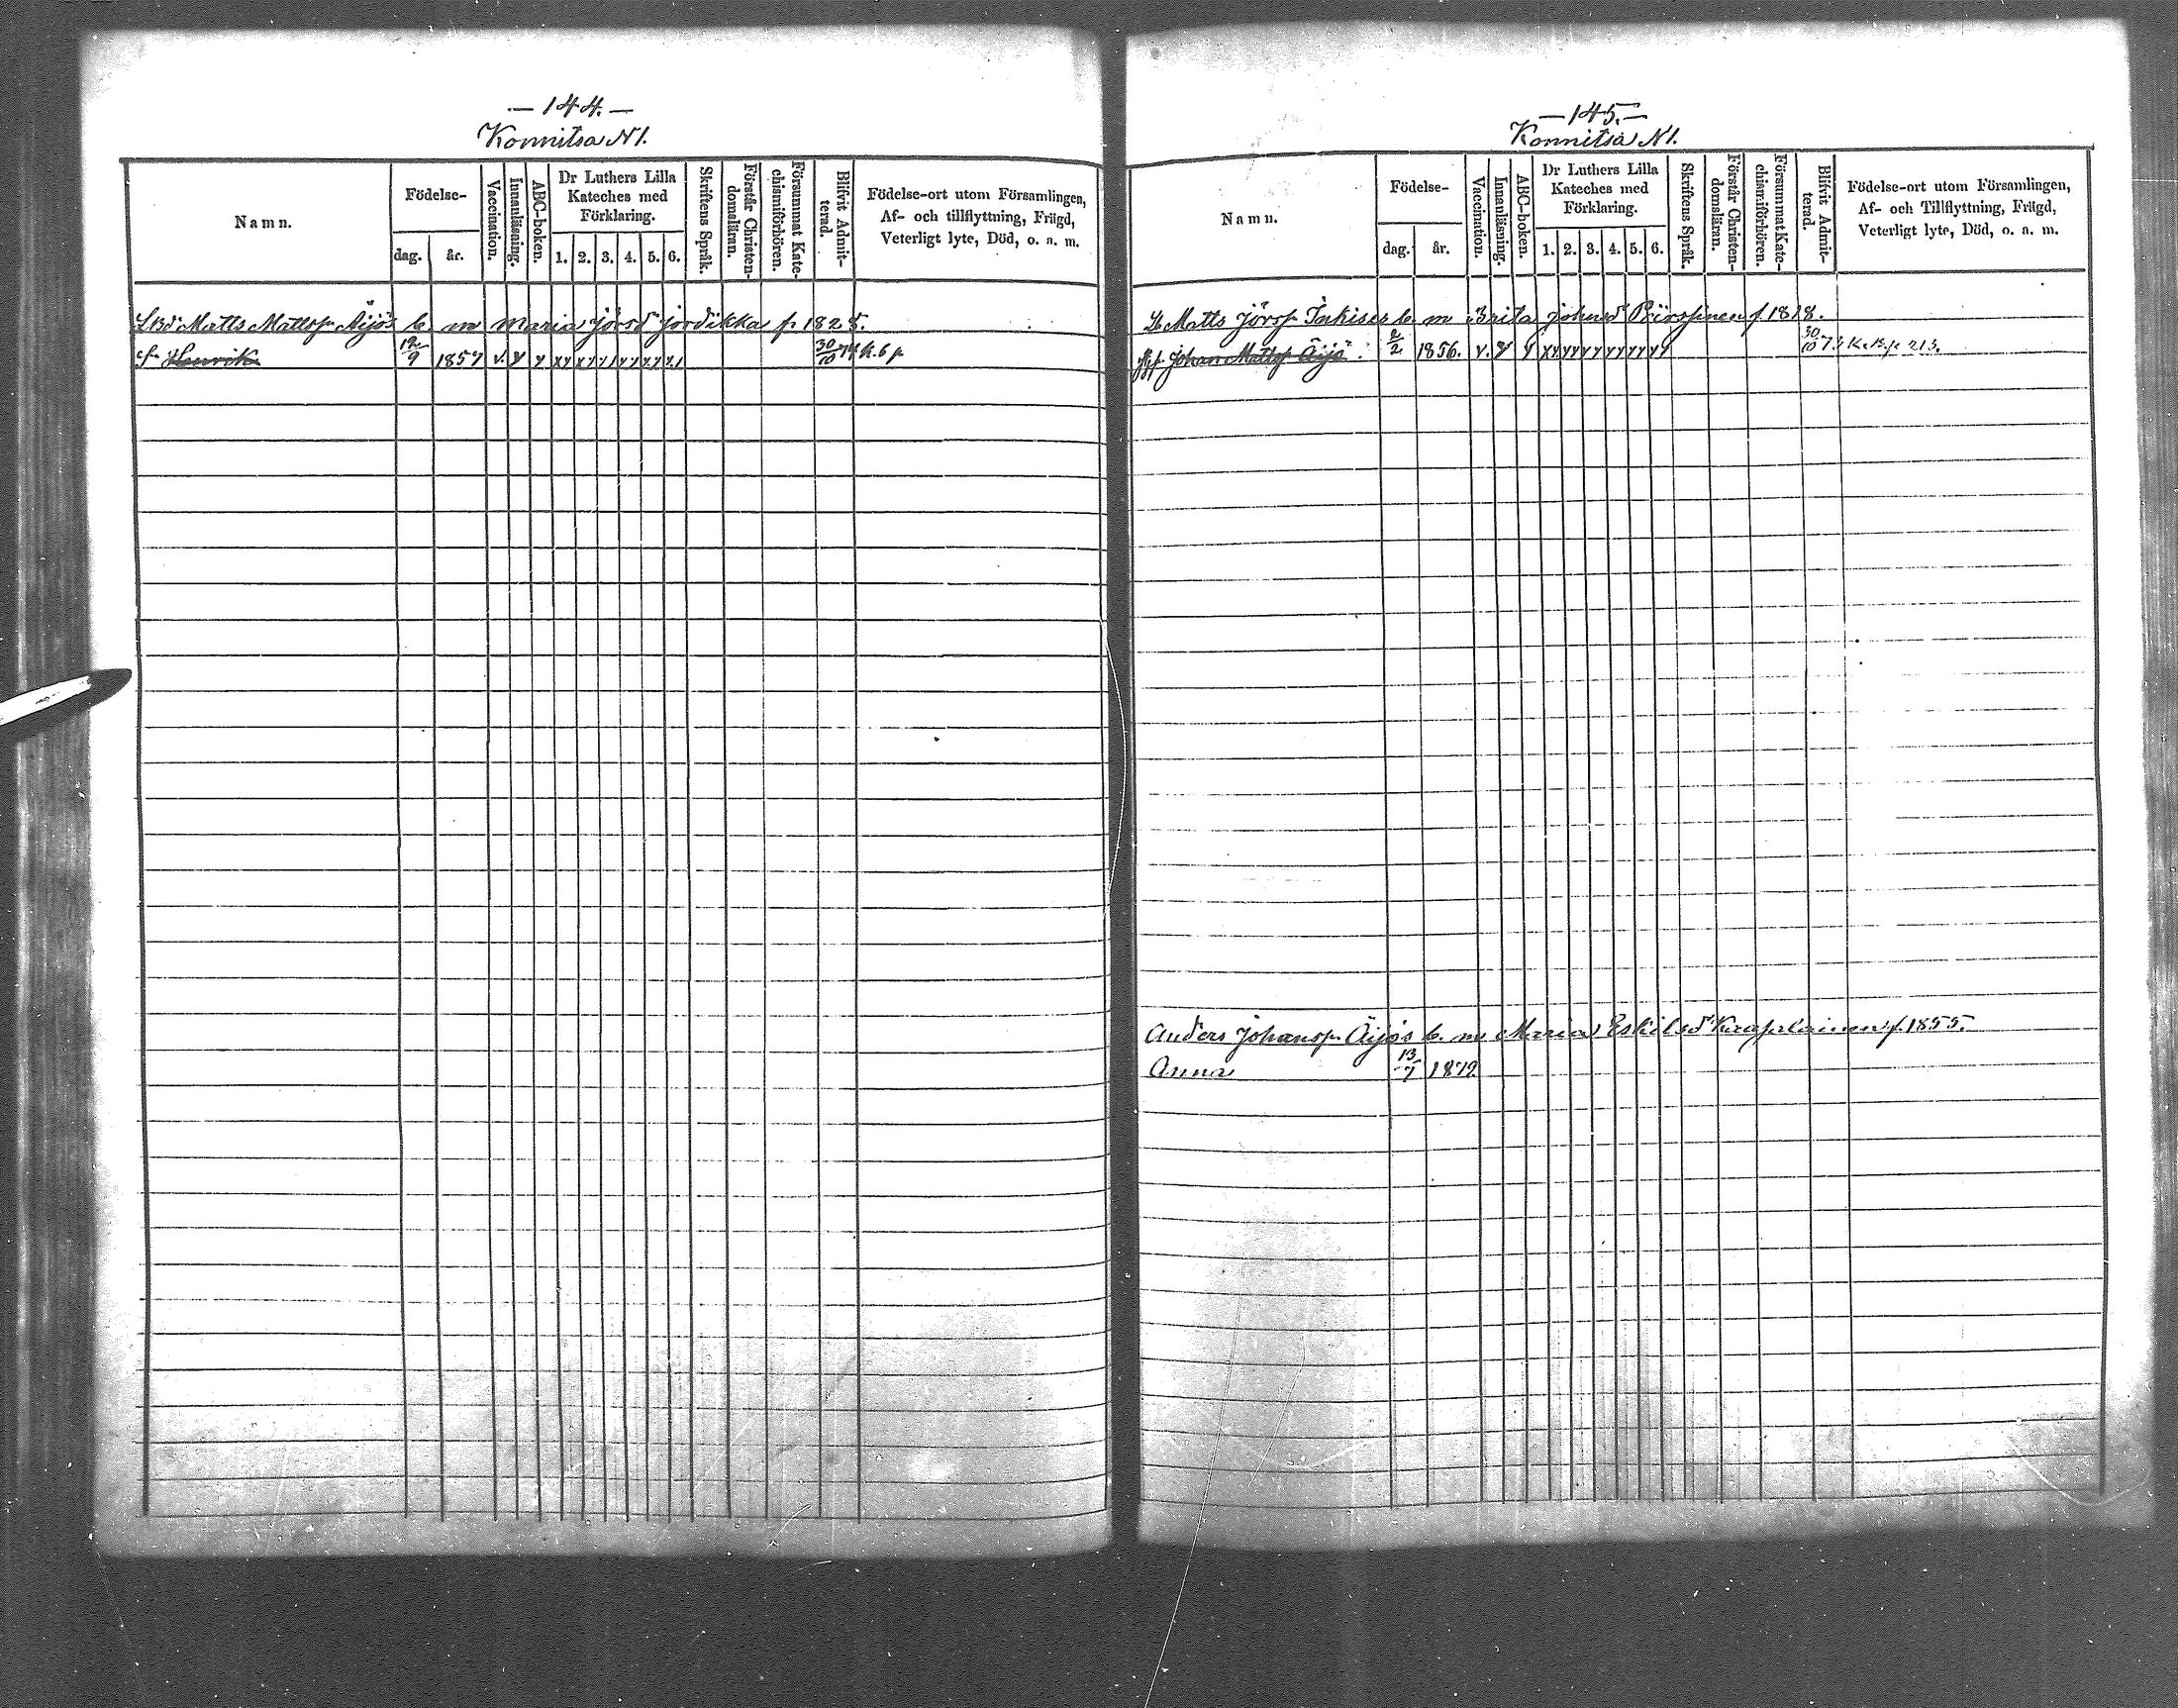 — 144. —
Konnitsa N 1.
Namn.
Födelse-
dag.
år.
Vaccination.
Innanläsning.
ABC-boken.
Dr Luthers Lilla
Kateches med
Förklaring.
1. 2. 3. 4. 5. 6.
Skriftens Språk.
Förstår Christen-
domsläran.
Försummat Kate-
chismiförhören.
Blifvit Admit-
terad.
Födelse-ort utom Församlingen,
Af- och tillflyttning, Frägd,
Veterligt lyte, Död, o. a. m.
Matts Mattsp. Äijös b m Maria Jörsd Jordikka f. 1825.
S. Henrik 12/9 1857 v. 30/10 74 K. b p
— 145. —
Konnitsa N 1.
Namn.
Födelse-
dag.
år.
Vaccination.
Innanläsning.
ABC-boken.
Dr Luthers Lilla
Kateches med
Förklaring.
1. 2. 3. 4. 5. 6.
Skriftens Språk.
Förstår Christen-
domsläran.
Försummat Kate-
chismiförhören.
Blifvit Admit-
terad.
Födelse-ort utom Församlingen,
Af- och Tillflyttning, Frägd,
Veterligt lyte, Död, o. a. m.
Matts Jörsp. Inkises b m Brita Johnsd f. 1818.
Johan Mattsp Äijö 2/2 1856. v. 30/10 73 K. B. p. 213.
Anders Johansp. Äijös b. m Maria Eskilsd Kaapalainen f. 1855.
Anna 13/7 1879